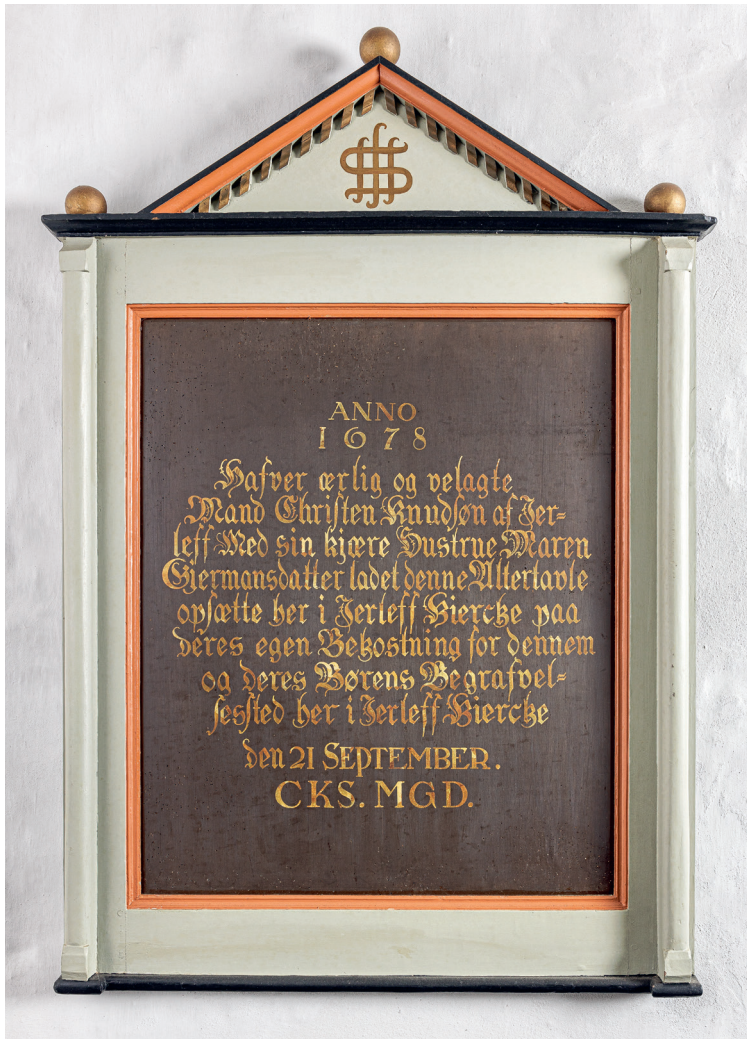 IHS
ANNO
1678
Hafver ærlig og velagte
Mand Christen Knudsøn af Jer=
leff Med sin kjære Hustrue Maren
Gjermansdatter ladet denne Altertavle
opsætte her i Jerleff Kiercke paa
deres egen Bekostning for dennem
og deres Børens Begrafvel=
sessted her i Jerleff Kiercke
den 21 SEPTEMBER.
CKS. MGD.